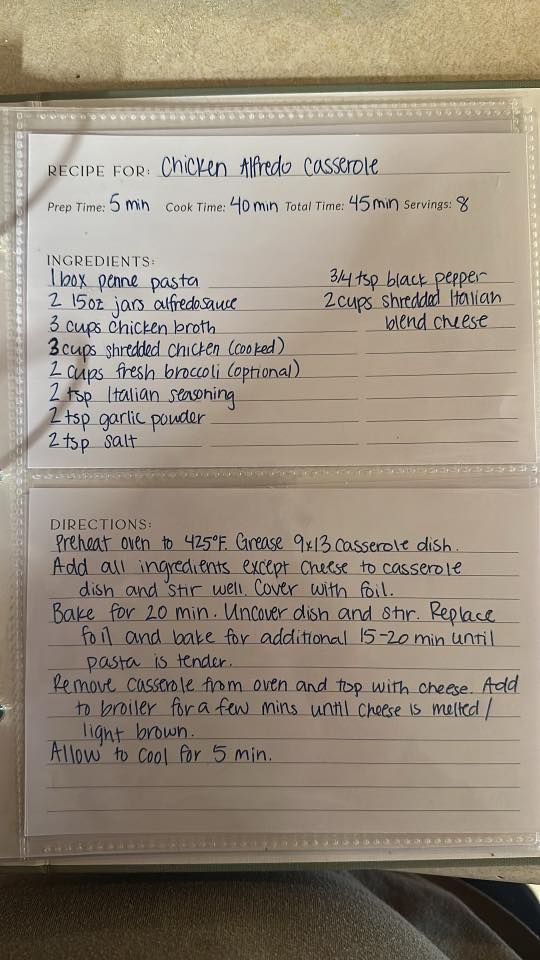 RECIPE FOR: Chicken Alfredo Casserole
Prep Time: 5 min Cook Time: 40 min Total Time: 45 min Servings: 8
INGREDIENTS:
1 box penne pasta
2 15oz jars alfredo sauce
3 cups chicken broth
3 cups shredded chicken (cooked)
2 cups fresh broccoli (optional)
2 tsp Italian seasoning
2 tsp garlic powder
2 tsp salt
3/4 tsp black pepper
2 cups shredded Italian
blend cheese
DIRECTIONS:
Preheat oven to 425°F. Grease 9x13 casserole dish.
Add all ingredients except cheese to casserole
dish and stir well. Cover with foil.
Bake for 20 min. Uncover dish and stir. Replace
foil and bake for additional 15-20 min until
pasta is tender.
Remove casserole from oven and top with cheese. Add
to broiler for a few mins until cheese is melted/
light brown.
Allow to cool for 5 min.